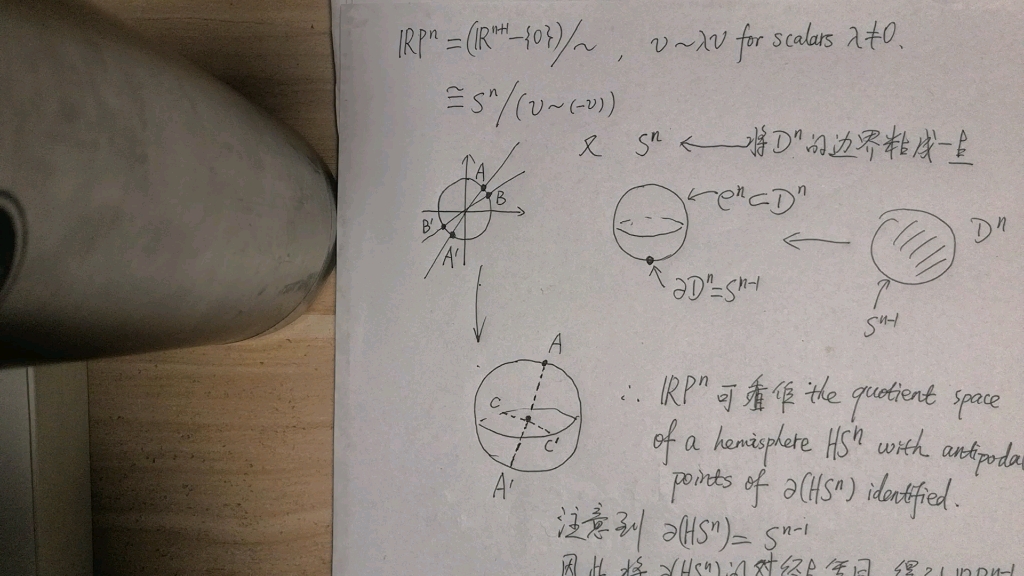 ℝPⁿ = (ℝⁿ⁺¹-{0})/∼ , v∼λv for scalars λ≠0.
≅ Sⁿ/(v∼(-v))
又 Sⁿ ← 将Dⁿ的边界粘成一点
A
B
B'
A'
eⁿ⊂Dⁿ
Dⁿ
∂Dⁿ=Sⁿ⁻¹
Sⁿ⁻¹
A
C
C'
A'
∴ ℝPⁿ 可看作 the quotient space
of a hemisphere HSⁿ with antipodal
points of ∂(HSⁿ) identified.
注意到 ∂(HSⁿ) = Sⁿ⁻¹
因此 将 ∂(HSⁿ)的对径点